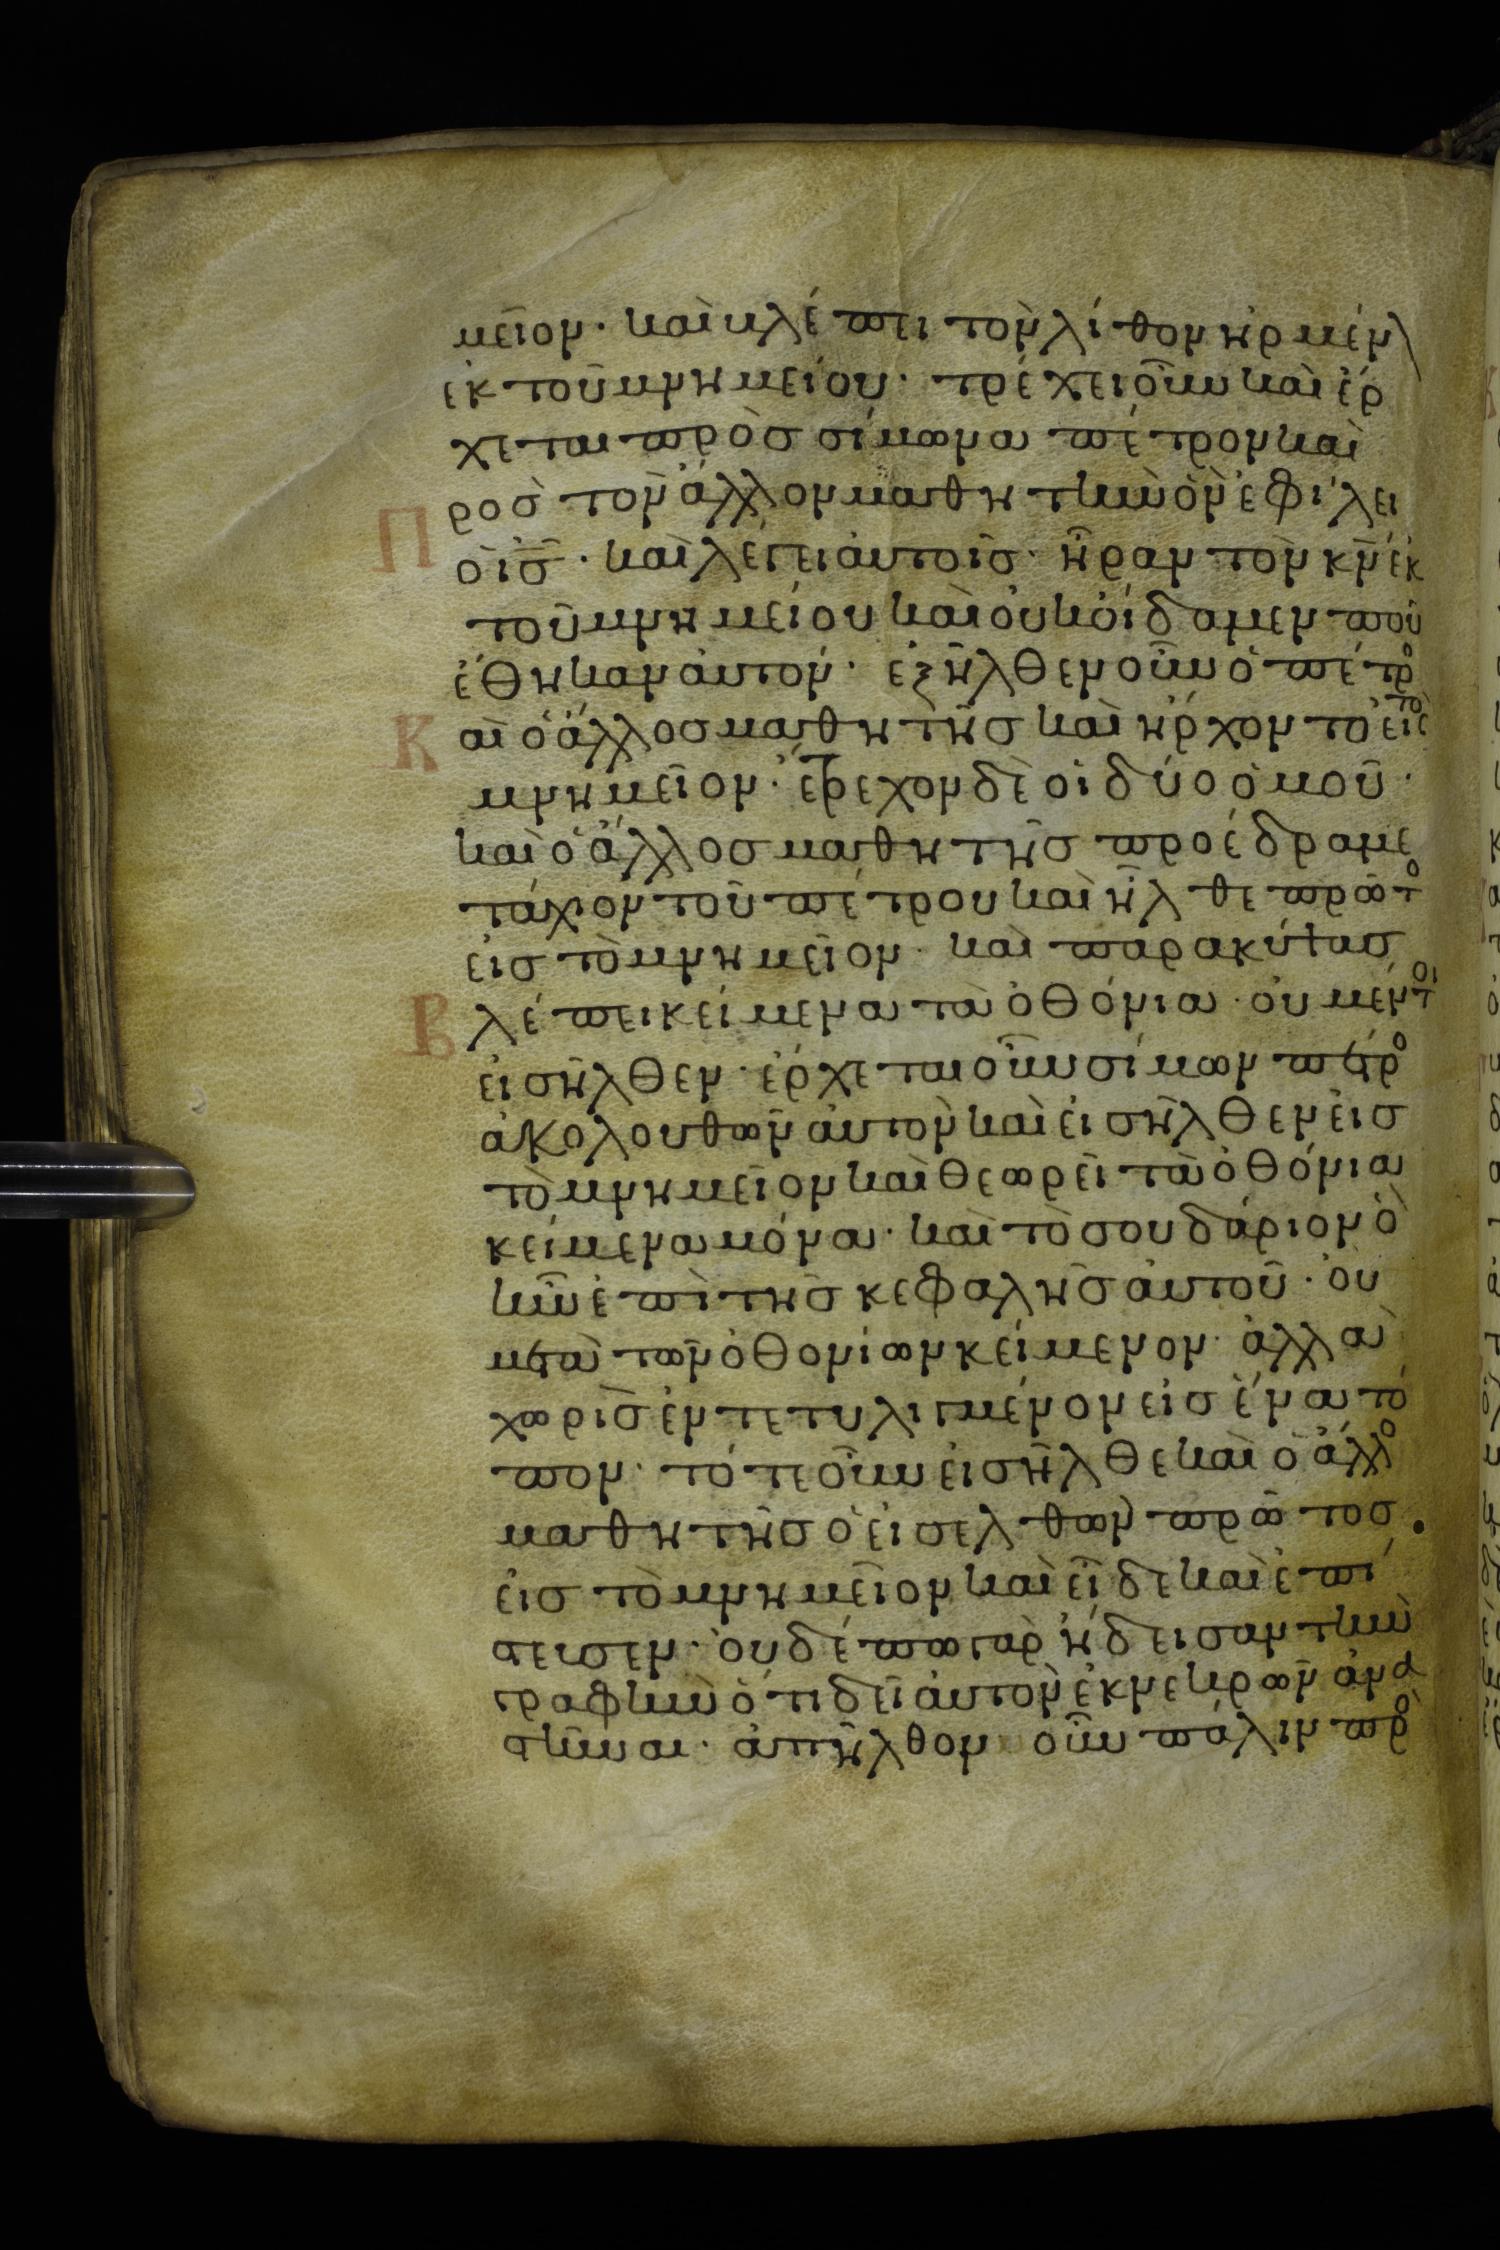 μεῖον· καὶ κλέπει τὸν λίθον ἠρμέν
ἐκ τοῦ μνημείου· τρέχει οὖν καὶ ἔρ
χεται πρὸς σίμωνα πέτρον καὶ
Προς τὸν ἄλλον μαθητὴν ὃν ἐφίλει
ὁ ις· καὶ λέγει αὐτοῖς· ἦραν τὸν κν ἐκ
τοῦ μνημείου καὶ οὐκ οἴδαμεν ποῦ
ἔθηκαν αὐτόν· ἐξῆλθεν οὖν ὁ πέτρο
Και ὁ ἄλλος μαθητὴς καὶ ἤρχοντο εἰς τὸ
μνημεῖον· ἔτρεχον δὲ οἱ δύο ὁμοῦ·
καὶ ὁ ἄλλος μαθητὴς προέδραμε
τάχιον τοῦ πέτρου καὶ ἦλθε πρῶτο
εἰς τὸ μνημεῖον· καὶ παρακύψας
Βλέπει κείμενα τὰ ὀθόνια· οὐ μέντοι
εἰσῆλθεν· ἔρχεται οὖν σίμων πέτρο
ἀκολουθῶν αὐτὸν καὶ εἰσῆλθεν εἰς
τὸ μνημεῖον καὶ θεωρεῖ τὰ ὀθόνια
κείμενα μόνα· καὶ τὸ σουδάριον ὃ
ἦν ἐπὶ τῆς κεφαλῆς αὐτοῦ· οὐ
μετὰ τῶν ὀθονίων κείμενον· ἀλλὰ
χωρὶς ἐντετυλιγμένον εἰς ἕνα τό
πον· τότε οὖν εἰσῆλθε καὶ ὁ ἄλλο
μαθητὴς ὁ εἰσελθὼν πρῶτος
εἰς τὸ μνημεῖον καὶ εἶδε καὶ ἐπί
στευσεν· οὐδέπω γὰρ ἤδεισαν τὴν
γραφὴν ὅτι δεῖ αὐτὸν ἐκ νεκρῶν ἀνα
στῆναι· ἀπῆλθον οὖν πάλιν πρὸ